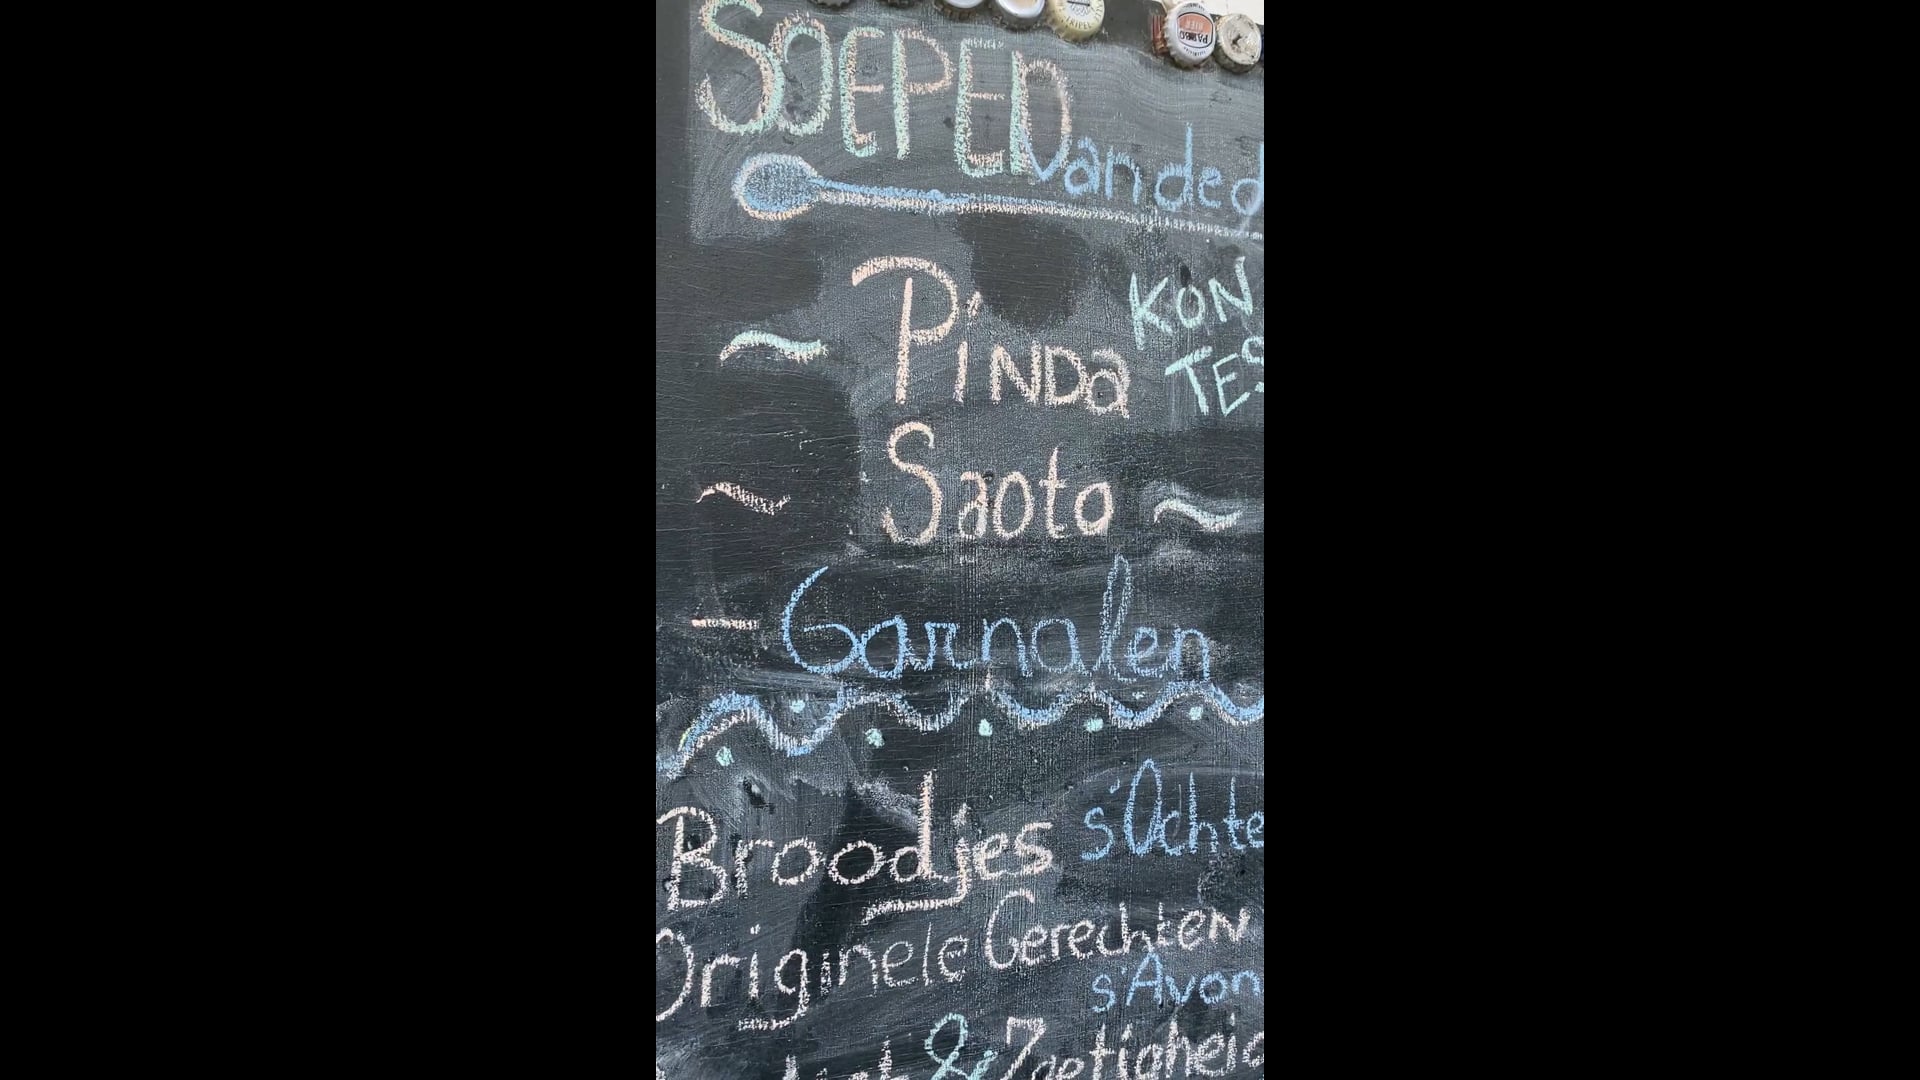 SOEPEN van de d
Pinda
KON
TES
Saoto
Garnalen
Broodjes s'Ochte
Originele Gerechten
s'Avon
& Zoetigheid